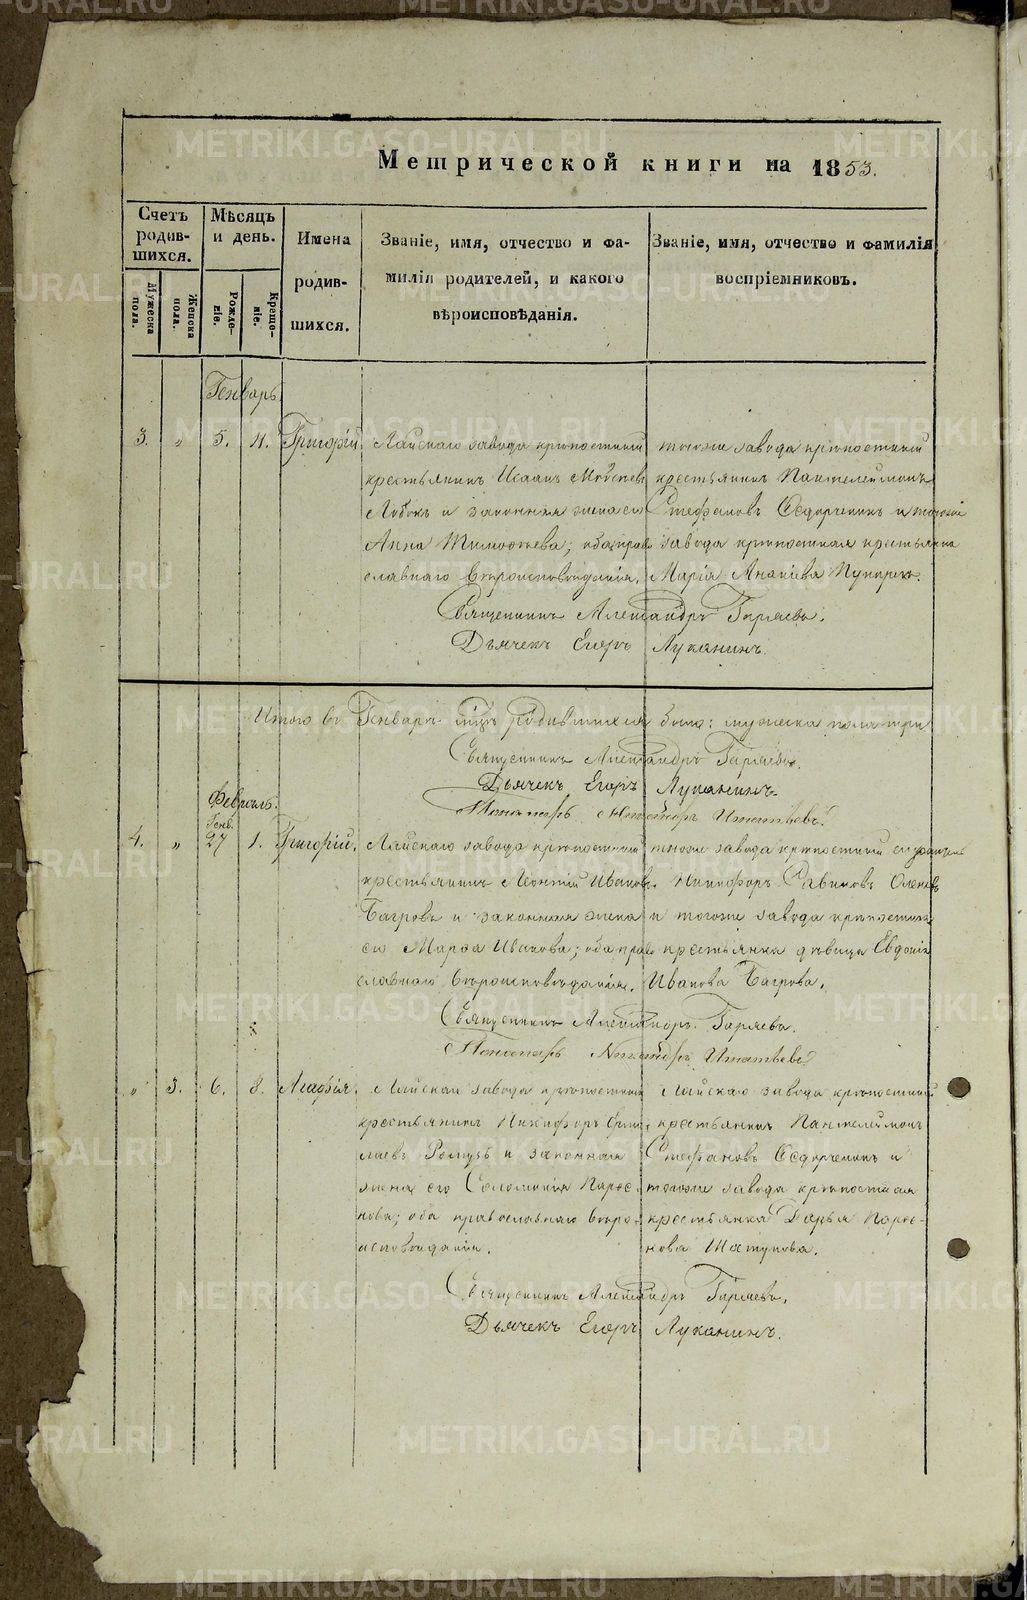 Метрической книги на 1853.
Счетъ родив-шихся.
Мѣсяцъ и день.
Имена родив-шихся.
Званіе, имя, отчество и фа-
милія родителей, и какого
вѣроисповѣданія.
Званіе, имя, отчество и фамилія
воспріемниковъ.
Мужеска пола.
Женска пола.
Рожде-ніе.
Креще-ніе.
Генварь
3. „ 5. 11. Григорій. Лайскаго завода крѣпостный тогоже завода крѣпостный
крестьянинъ Исаакъ крестьянинъ Пантелеимонъ
Лобокъ и законная жена его Стефановъ Ѳедорченко и тогоже
Анна Тимофѣева; оба право завода крѣпостная крестьянка
славнаго вѣроисповѣданія. Марія Ананіева
Священникъ Александръ Гаряевъ.
Дьячекъ Егоръ Луканинъ.
Итого въ Генварѣ родившихся было: мужеска пола три
Священникъ Александръ Гаряевъ.
Дьячекъ Егоръ Луканинъ.
Пономарь Никандръ Игнатьевъ.
Февраль.
Генв.
4. „ 27 1. Григорій. Лайскаго завода крѣпостный тогоже завода крѣпостный
крестьянинъ Леонтій Ивановъ Никифоръ Савиновъ
Багровъ и законная жена и тогоже завода крѣпостная
его Марѳа Иванова; оба право крестьянка дѣвица Евдокія
славнаго вѣроисповѣданія. Иванова Багрова.
Священникъ Александръ Гаряевъ.
Пономарь Никандръ Игнатьевъ.
„ 3. 6. 8. Агафія. Лайскаго завода крѣпостный Лайскаго завода крѣпостный
крестьянинъ Никифоръ крестьянинъ Пантелеимонъ
и законная Стефановъ Ѳедорченко и
жена его Соломонія Парѳе- тогоже завода крѣпостная
нова; оба православнаго вѣро- крестьянка Дарья Парѳе-
исповѣданія. нова Шатунова.
Священникъ Александръ Гаряевъ.
Дьячекъ Егоръ Луканинъ.
METRIKI.GASO-URAL.RU